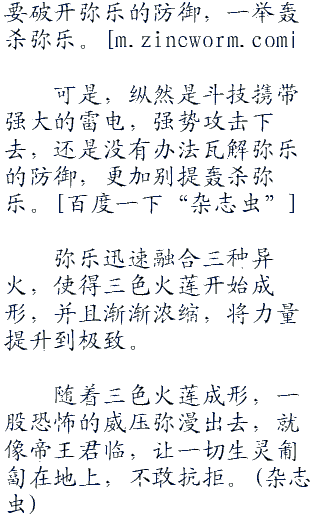 要破开弥乐的防御，一举轰
杀弥乐。[m.zincworm.com|
可是，纵然是斗技携带
强大的雷电，强势攻击下
去，还是没有办法瓦解弥乐
的防御，更加别提轰杀弥
乐。[百度一下“杂志虫”]
弥乐迅速融合三种异
火，使得三色火莲开始成
形，并且渐渐浓缩，将力量
提升到极致。
随着三色火莲成形，一
股恐怖的威压弥漫出去，就
像帝王君临，让一切生灵匍
匐在地上，不敢抗拒。(杂志
虫)